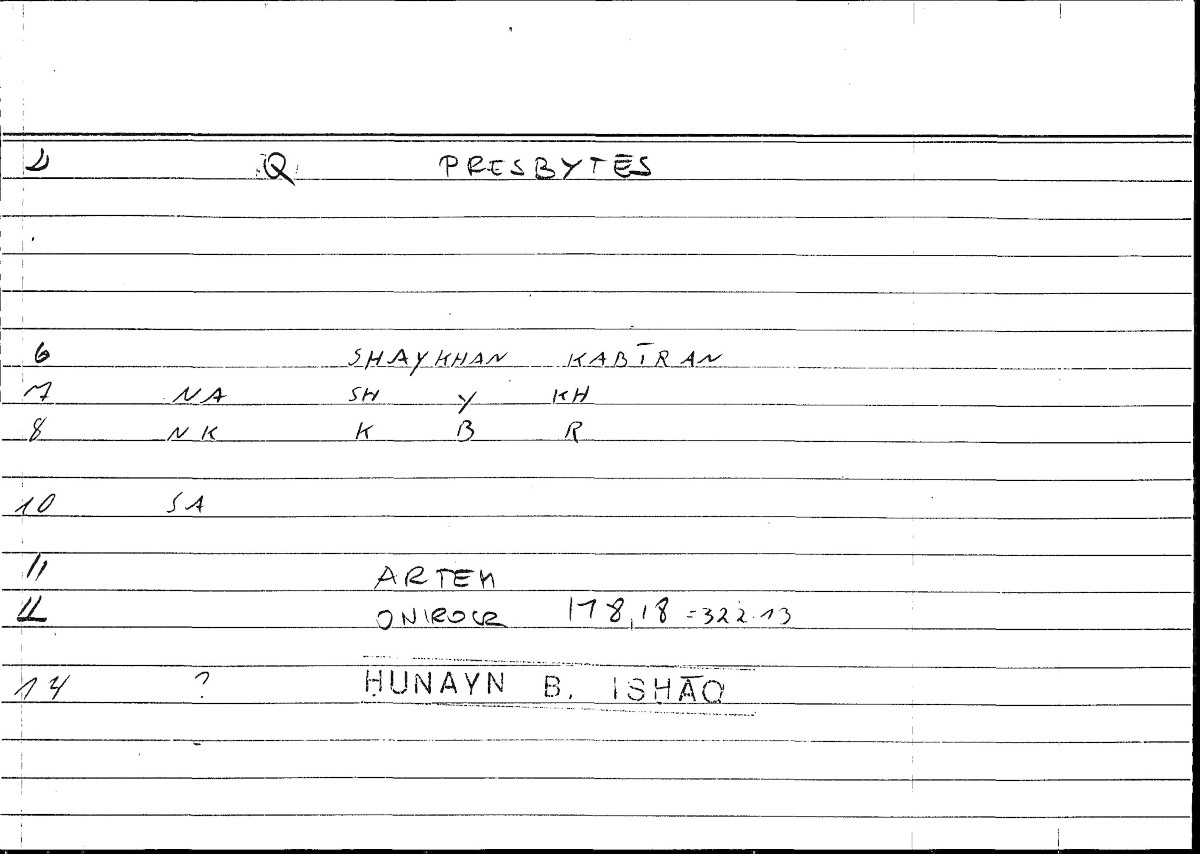 2 Q PRESBYTĒS
6 SHAYKHAN KABĪRAN
7 NA SH Y KH
8 NK K B R
10 SA
11 ARTEM
12 ONIROCR 178,18 = 322.13
14 ? HUNAYN B. ISHĀQ